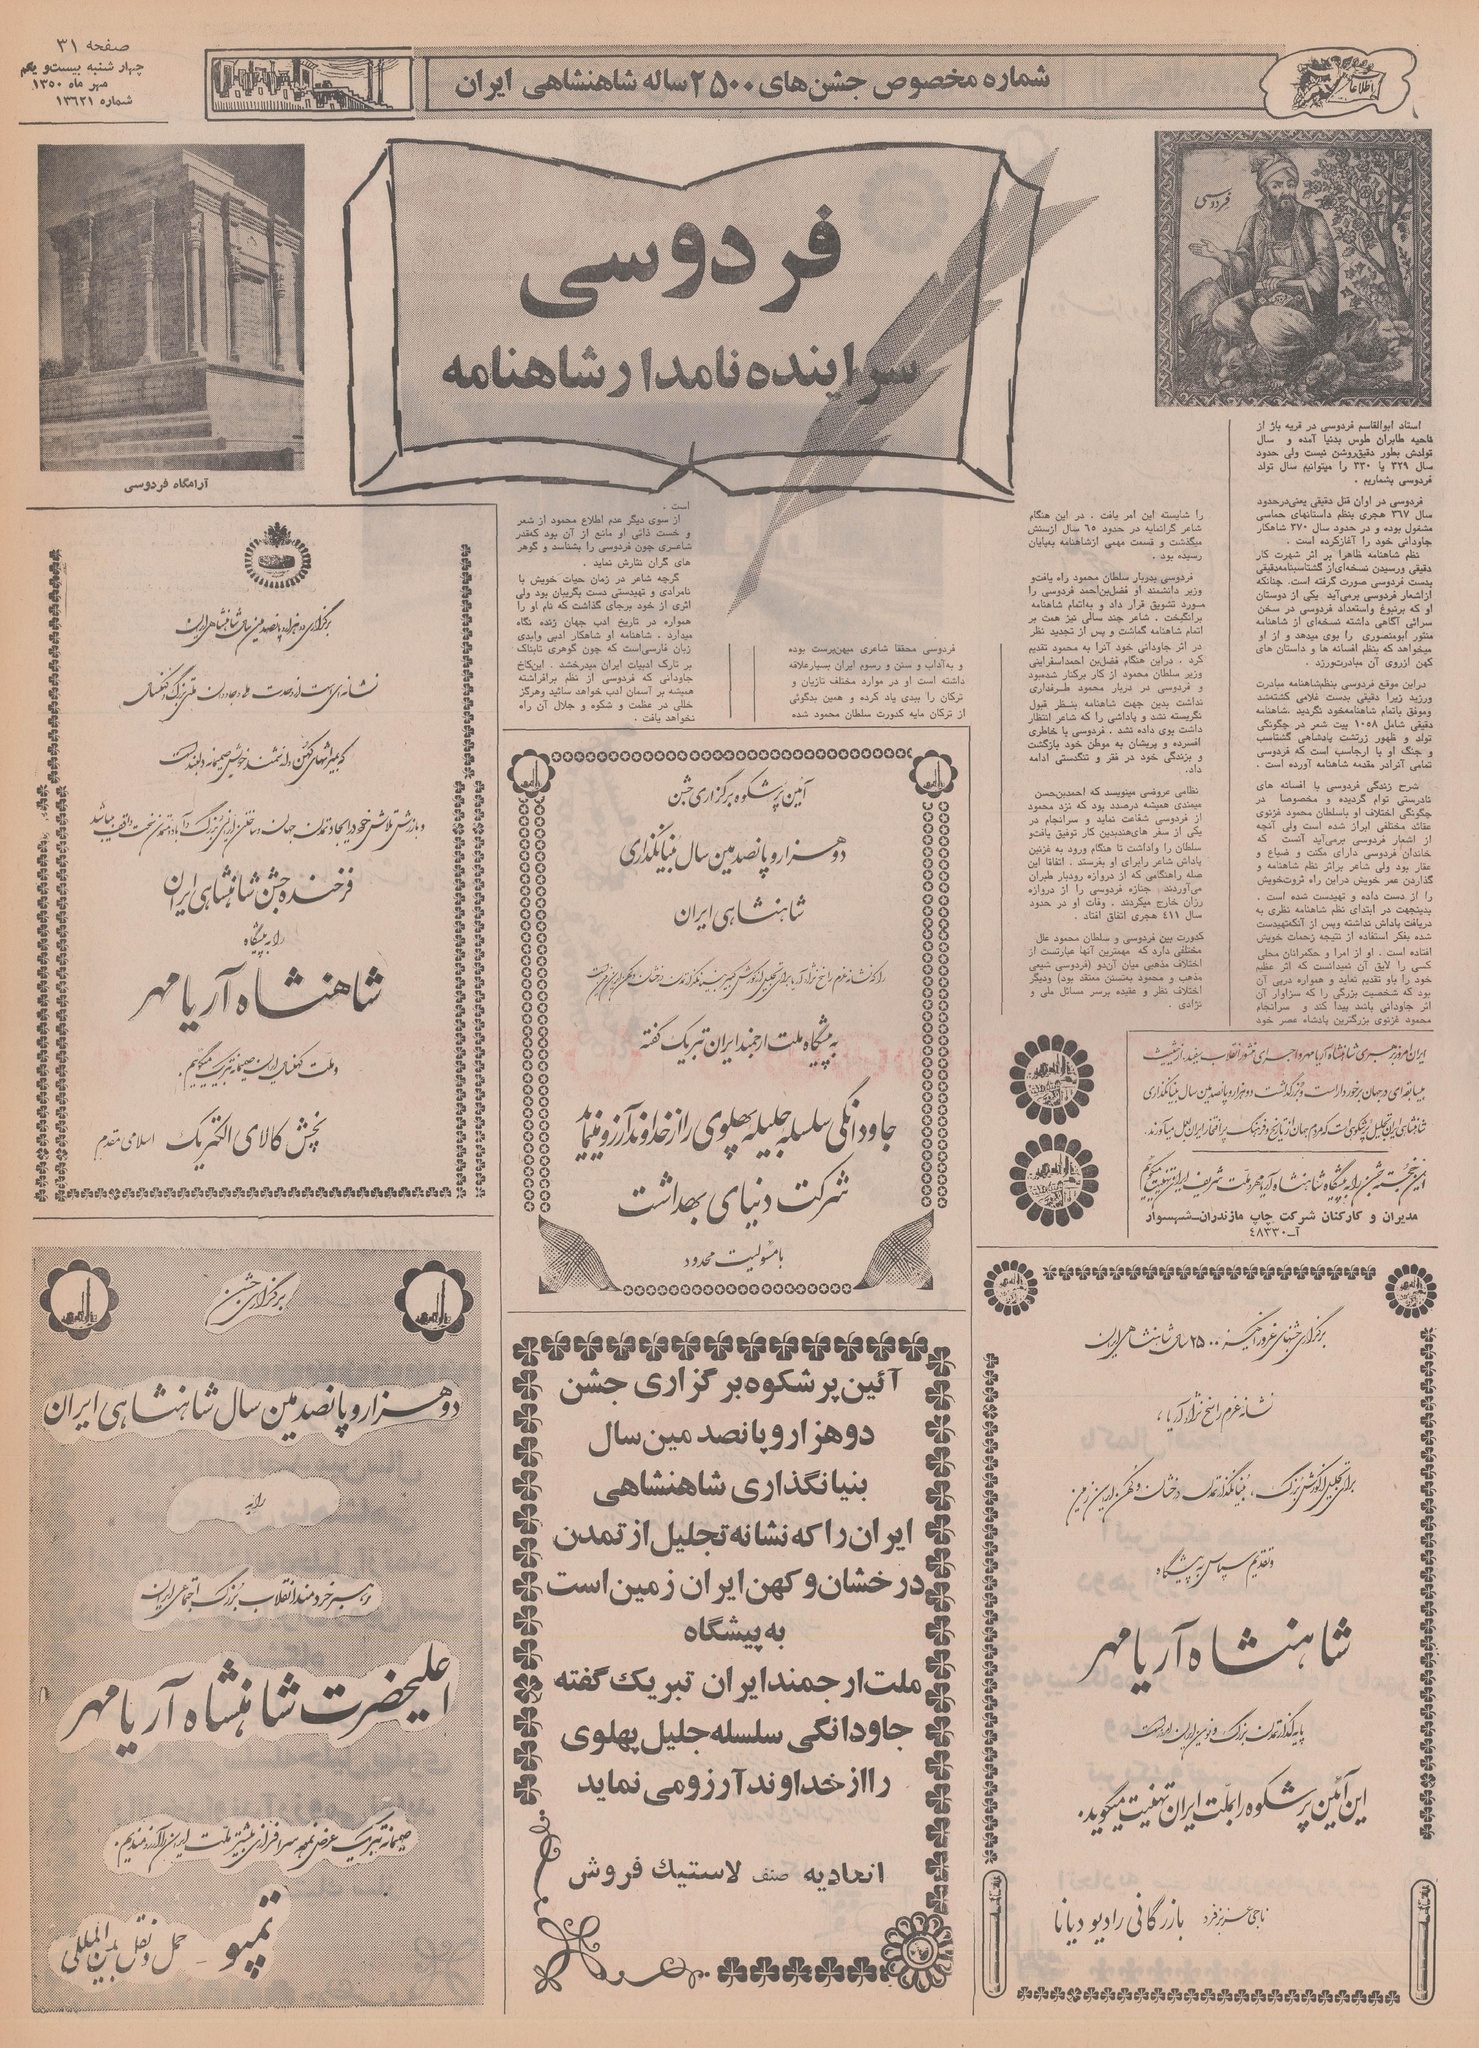 صفحه ۳۱
چهار شنبه بیست و یکم
مهر ماه ۱۳۵۰
شماره ۱۳۶۲۱
شماره مخصوص جشن‌های ۲۵۰۰ ساله شاهنشاهی ایران
اطلاعات
فردوسی
فردوسی
سراینده نامدار شاهنامه
آرامگاه فردوسی
استاد ابوالقاسم فردوسی در قریه باژ از
ناحیه طابران طوس بدنیا آمده و سال
تولدش بطور دقیق‌روشن نیست ولی حدود
سال ۳۲۹ یا ۳۳۰ را میتوانیم سال تولد
فردوسی بشماریم .
فردوسی در اوان قتل دقیقی یعنی‌درحدود
سال ۳۶۷ هجری بنظم داستانهای حماسی
مشغول بوده و در حدود سال ۳۷۰ شاهکار
جاودانی خود را آغازکرده است .
نظم شاهنامه ظاهرا بر اثر شهرت کار
دقیقی ورسیدن نسخه‌ای از گشتاسبنامه‌دقیقی
بدست فردوسی صورت گرفته است. چنانکه
ازاشعار فردوسی برمی‌آید یکی از دوستان
او که برنبوغ واستعداد فردوسی در سخن
سرائی آگاهی داشته نسخه‌ای از شاهنامه
منثور ابومنصوری را بوی میدهد و از او
میخواهد که بنظم افسانه ها و داستان های
کهن ازروی آن مبادرت‌ورزد .
دراین موقع فردوسی بنظم‌شاهنامه مبادرت
ورزید زیرا دقیقی بدست غلامی کشته‌شد
وموفق باتمام شاهنامه‌خود نگردید .شاهنامه
دقیقی شامل ۱۰۵۸ بیت شعر در چگونگی
تولد و ظهور زرتشت پادشاهی گشتاسب
و جنگ او با ارجاسب است که فردوسی
تمامی آنرادر مقدمه شاهنامه آورده است .
شرح زندگی فردوسی با افسانه های
نادرستی توام گردیده و مخصوصا در
چگونگی اختلاف او باسلطان محمود غزنوی
عقائد مختلفی ابراز شده است ولی آنچه
از اشعار فردوسی برمی‌آید آنست که
خاندان فردوسی دارای مکنت و ضیاع و
عقار بود ولی شاعر براثر نظم شاهنامه و
گذاردن عمر خویش دراین راه ثروت‌خویش
را از دست داده و تهیدست شده است .
بدینجهت در ابتدای نظم شاهنامه نظری به
دریافت پاداش نداشته وپس از آنکه‌تهیدست
شده بفکر استفاده از نتیجه زحمات خویش
افتاده است . او از امرا و حکمرانان محلی
کسی را لایق آن نمیدانست که اثر عظیم
خود را باو تقدیم نماید و همواره درپی آن
بود که شخصیت بزرگی را که سزاوار آن
اثر جاودانی باشد پیدا کند و سرانجام
محمود غزنوی بزرگترین پادشاه عصر خود
را شایسته این امر یافت . در این هنگام
شاعر گرانمایه در حدود ۶۵ سال ازسنش
میگذشت و قسمت مهمی ازشاهنامه بپایان
رسیده بود .
فردوسی بدربار سلطان محمود راه یافت‌و
وزیر دانشمند او فضل‌بن‌احمد فردوسی را
مورد تشویق قرار داد و به‌اتمام شاهنامه
برانگیخت . شاعر چند سالی نیز همت بر
اتمام شاهنامه گماشت و پس از تجدید نظر
در اثر جاودانی خود آنرا به محمود تقدیم
کرد . دراین هنگام فضل‌بن احمداسفراینی
وزیر سلطان محمود از کار برکنار شده‌بود
و فردوسی در دربار محمود طرفداری
نداشت بدین جهت شاهنامه بنظر قبول
نگریسته نشد و پاداشی را که شاعر انتظار
داشت بوی داده نشد . فردوسی با خاطری
افسرده و پریشان به موطن خود بازگشت
و بزندگی خود در فقر و تنگدستی ادامه
داد.
نظامی عروضی مینویسد که احمدبن‌حسن
میمندی همیشه درصدد بود که نزد محمود
از فردوسی شفاعت نماید و سرانجام در
یکی از سفر های‌هندبدین کار توفیق یافت‌و
سلطان را واداشت تا هنگام ورود به غزنین
پاداش شاعر رابرای او بفرستد . اتفاقا این
صله راهنگامی که از دروازه رودبار طبران
می‌آوردند جنازه فردوسی را از دروازه
رزان خارج میکردند . وفات او در حدود
سال ۴۱۱ هجری اتفاق افتاد .
کدورت بین فردوسی و سلطان محمود علل
مختلفی دارد که مهمترین آنها عبارتست از
اختلاف مذهبی میان آن‌دو (فردوسی شیعی
مذهب و محمود به‌تسنن معتقد بود) ودیگر
اختلاف نظر و عقیده برسر مسائل ملی و
نژادی .
فردوسی محققا شاعری میهن‌پرست بوده
و به‌آداب و سنن و رسوم ایران بسیارعلاقه
داشته است او در موارد مختلف تازیان و
ترکان را ببدی یاد کرده و همین بدگوئی
از ترکان مایه کدورت سلطان محمود شده
است .
از سوی دیگر عدم اطلاع محمود از شعر
و خست ذاتی او مانع از آن بود که‌قدر
شاعری چون فردوسی را بشناسد و گوهر
های گران نثارش نماید .
گرچه شاعر در زمان حیات خویش با
نامرادی و تهیدستی دست بگریبان بود ولی
اثری از خود برجای گذاشت که نام او را
همواره در تاریخ ادب جهان زنده نگاه
میدارد . شاهنامه او شاهکار ادبی وابدی
زبان فارسی‌است که چون گوهری تابناک
بر تارک ادبیات ایران میدرخشد . این‌کاخ
جاودانی که فردوسی از نظم برافراشته
همیشه بر آسمان ادب خواهد سائید وهرگز
خللی در عظمت و شکوه و جلال آن راه
نخواهد یافت .
برگزاری دوهزاروپانصدمین سال شاهنشاهی ایران
فرخنده جشن شاهنشاهی ایران
را به پیشگاه
شاهنشاه آریامهر
و ملت کهنسال ایران صمیمانه تبریک میگوئیم.
پخش کالای الکتریک اسلامی مقدم
آئین پرشکوه برگزاری جشن
دوهزاروپانصدمین سال بنیانگذاری
شاهنشاهی ایران
به پیشگاه ملت ارجمند ایران تبریک گفته
جاودانگی سلسله جلیله پهلوی را از خداوند آرزو مینماید
شرکت دنیای بهداشت
با مسئولیت محدود
شاهنشاهی ایران تجلیل پرشکوهی است که مردم جهان از تاریخ و فرهنگ پر افتخار ایران بعمل میآورند.
این خجسته جشن را به پیشگاه شاهنشاه آریامهر و ملت شریف ایران تهنیت میگوئیم
مدیران و کارکنان شرکت چاپ مازندران-شهسوار
آ-۴۸۳۳۰
برگزاری جشن
دوهزاروپانصدمین سال شاهنشاهی ایران
را به
رهبر خردمند انقلاب بزرگ اجتماعی ایران
اعلیحضرت شاهنشاه آریامهر
صمیمانه تبریک عرض نموده سرافرازی بیشتر ملت ایران را آرزومندیم.
تمپو - حمل و نقل بین المللی
آئین پرشکوه برگزاری جشن
دوهزار و پانصد مین سال
بنیانگذاری شاهنشاهی
ایران را که نشانه تجلیل از تمدن
درخشان و کهن ایران زمین است
به پیشگاه
ملت ارجمند ایران تبریک گفته
جاودانگی سلسله جلیل پهلوی
را از خداوند آرزو می نماید
اتحادیه صنف لاستیک فروش
برگزاری جشنهای غرورانگیز ۲۵۰۰ سال شاهنشاهی ایران
نشانه عزم راسخ نژاد آریا،
برای تجلیل از کورش بزرگ، بنیانگذار تمدن درخشان و کهن ایران زمین
و تقدیم سپاس به پیشگاه
شاهنشاه آریامهر
پایه گذار تمدن بزرگ و نوین ایران امروز است
این آئین پرشکوه را بملت ایران تهنیت میگوید.
بازرگانی رادیو دیانا